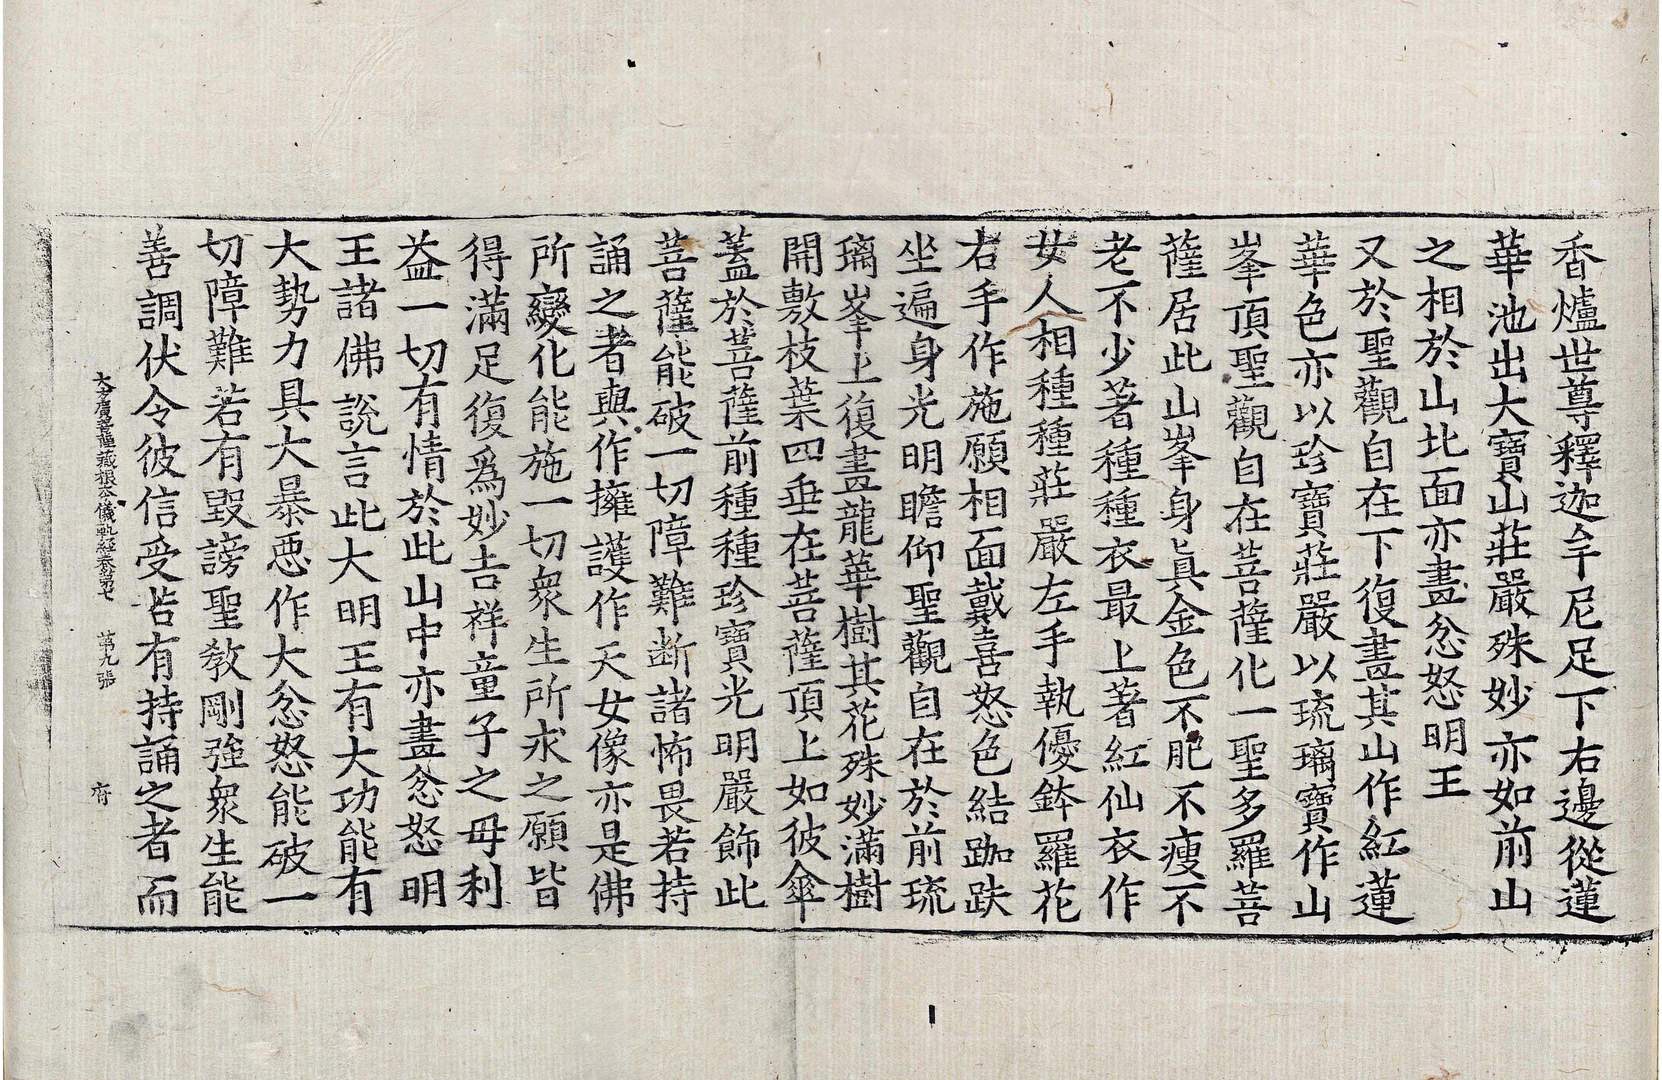 香爐世尊釋迦牟尼足下右邊從蓮
華池出大寶山莊嚴殊妙亦如前山
之相於山北面亦畫忿怒明王
又於聖觀自在下復畫其山作紅蓮
華色亦以珍寶莊嚴以琉璃寶作山
峯頂聖觀自在菩薩化一聖多羅菩
薩居此山峯身真金色不肥不瘦不
老不少著種種衣最上著紅仙衣作
女人相種種莊嚴左手執優鉢羅花
右手作施願相面戴喜怒色結跏趺
坐遍身光明瞻仰聖觀自在於前琉
璃峯上復畫龍華樹其花殊妙滿樹
開敷枝葉四垂在菩薩頂上如彼傘
蓋於菩薩前種種珍寶光明嚴飾此
菩薩能破一切障難斷諸怖畏若持
誦之者與作擁護作天女像亦是佛
所變化能施一切衆生所求之願皆
得滿足復爲妙吉祥童子之母利
益一切有情於此山中亦畫忿怒明
王諸佛說言此大明王有大功能有
大勢力具大暴惡作大忿怒能破一
切障難若有毀謗聖教剛強衆生能
善調伏令彼信受若有持誦之者而
大方廣菩薩藏根本儀軌經卷第七 第九張 府